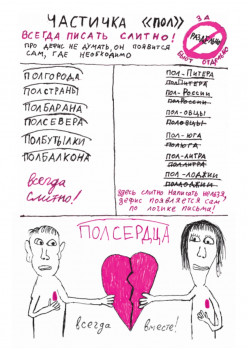 ЧАСТИЧКА «ПОЛ»
ВСЕГДА ПИСАТЬ СЛИТНО!
ПРО ДЕФИС НЕ ДУМАТЬ, ОН ПОЯВИТСЯ
САМ, ГДЕ НЕОБХОДИМО
ЗА
РАЗДЕЛЬНО
БЬЮТ ОТДЕЛЬНО
ПОЛГОРОДА
ПОЛСТРАНЫ
ПОЛБАРАНА
ПОЛСЕВЕРА
ПОЛБУТЫЛКИ
ПОЛБАЛКОНА
всегда
слитно!
ПОЛ-ПИТЕРА
ПОЛПИТЕРА
ПОЛ-РОССИИ
ПОЛРОССИИ
ПОЛ-ОВЦЫ
ПОЛОВЦЫ
ПОЛ-ЮГА
ПОЛЮГА
ПОЛ-ЛИТРА
ПОЛЛИТРА
ПОЛ-ЛОДЖИИ
ПОЛЛОДЖИИ
ЗДЕСЬ СЛИТНО НАПИСАТЬ НЕЛЬЗЯ,
ДЕФИС ПОЯВЛЯЕТСЯ САМ
ПО ЛОГИКЕ ПИСЬМА!
ПОЛСЕРДЦА
всегда вместе!